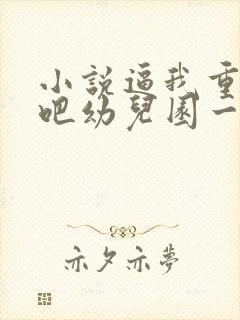 小說逼我重
吧幼兒園一
亦夕亦夢